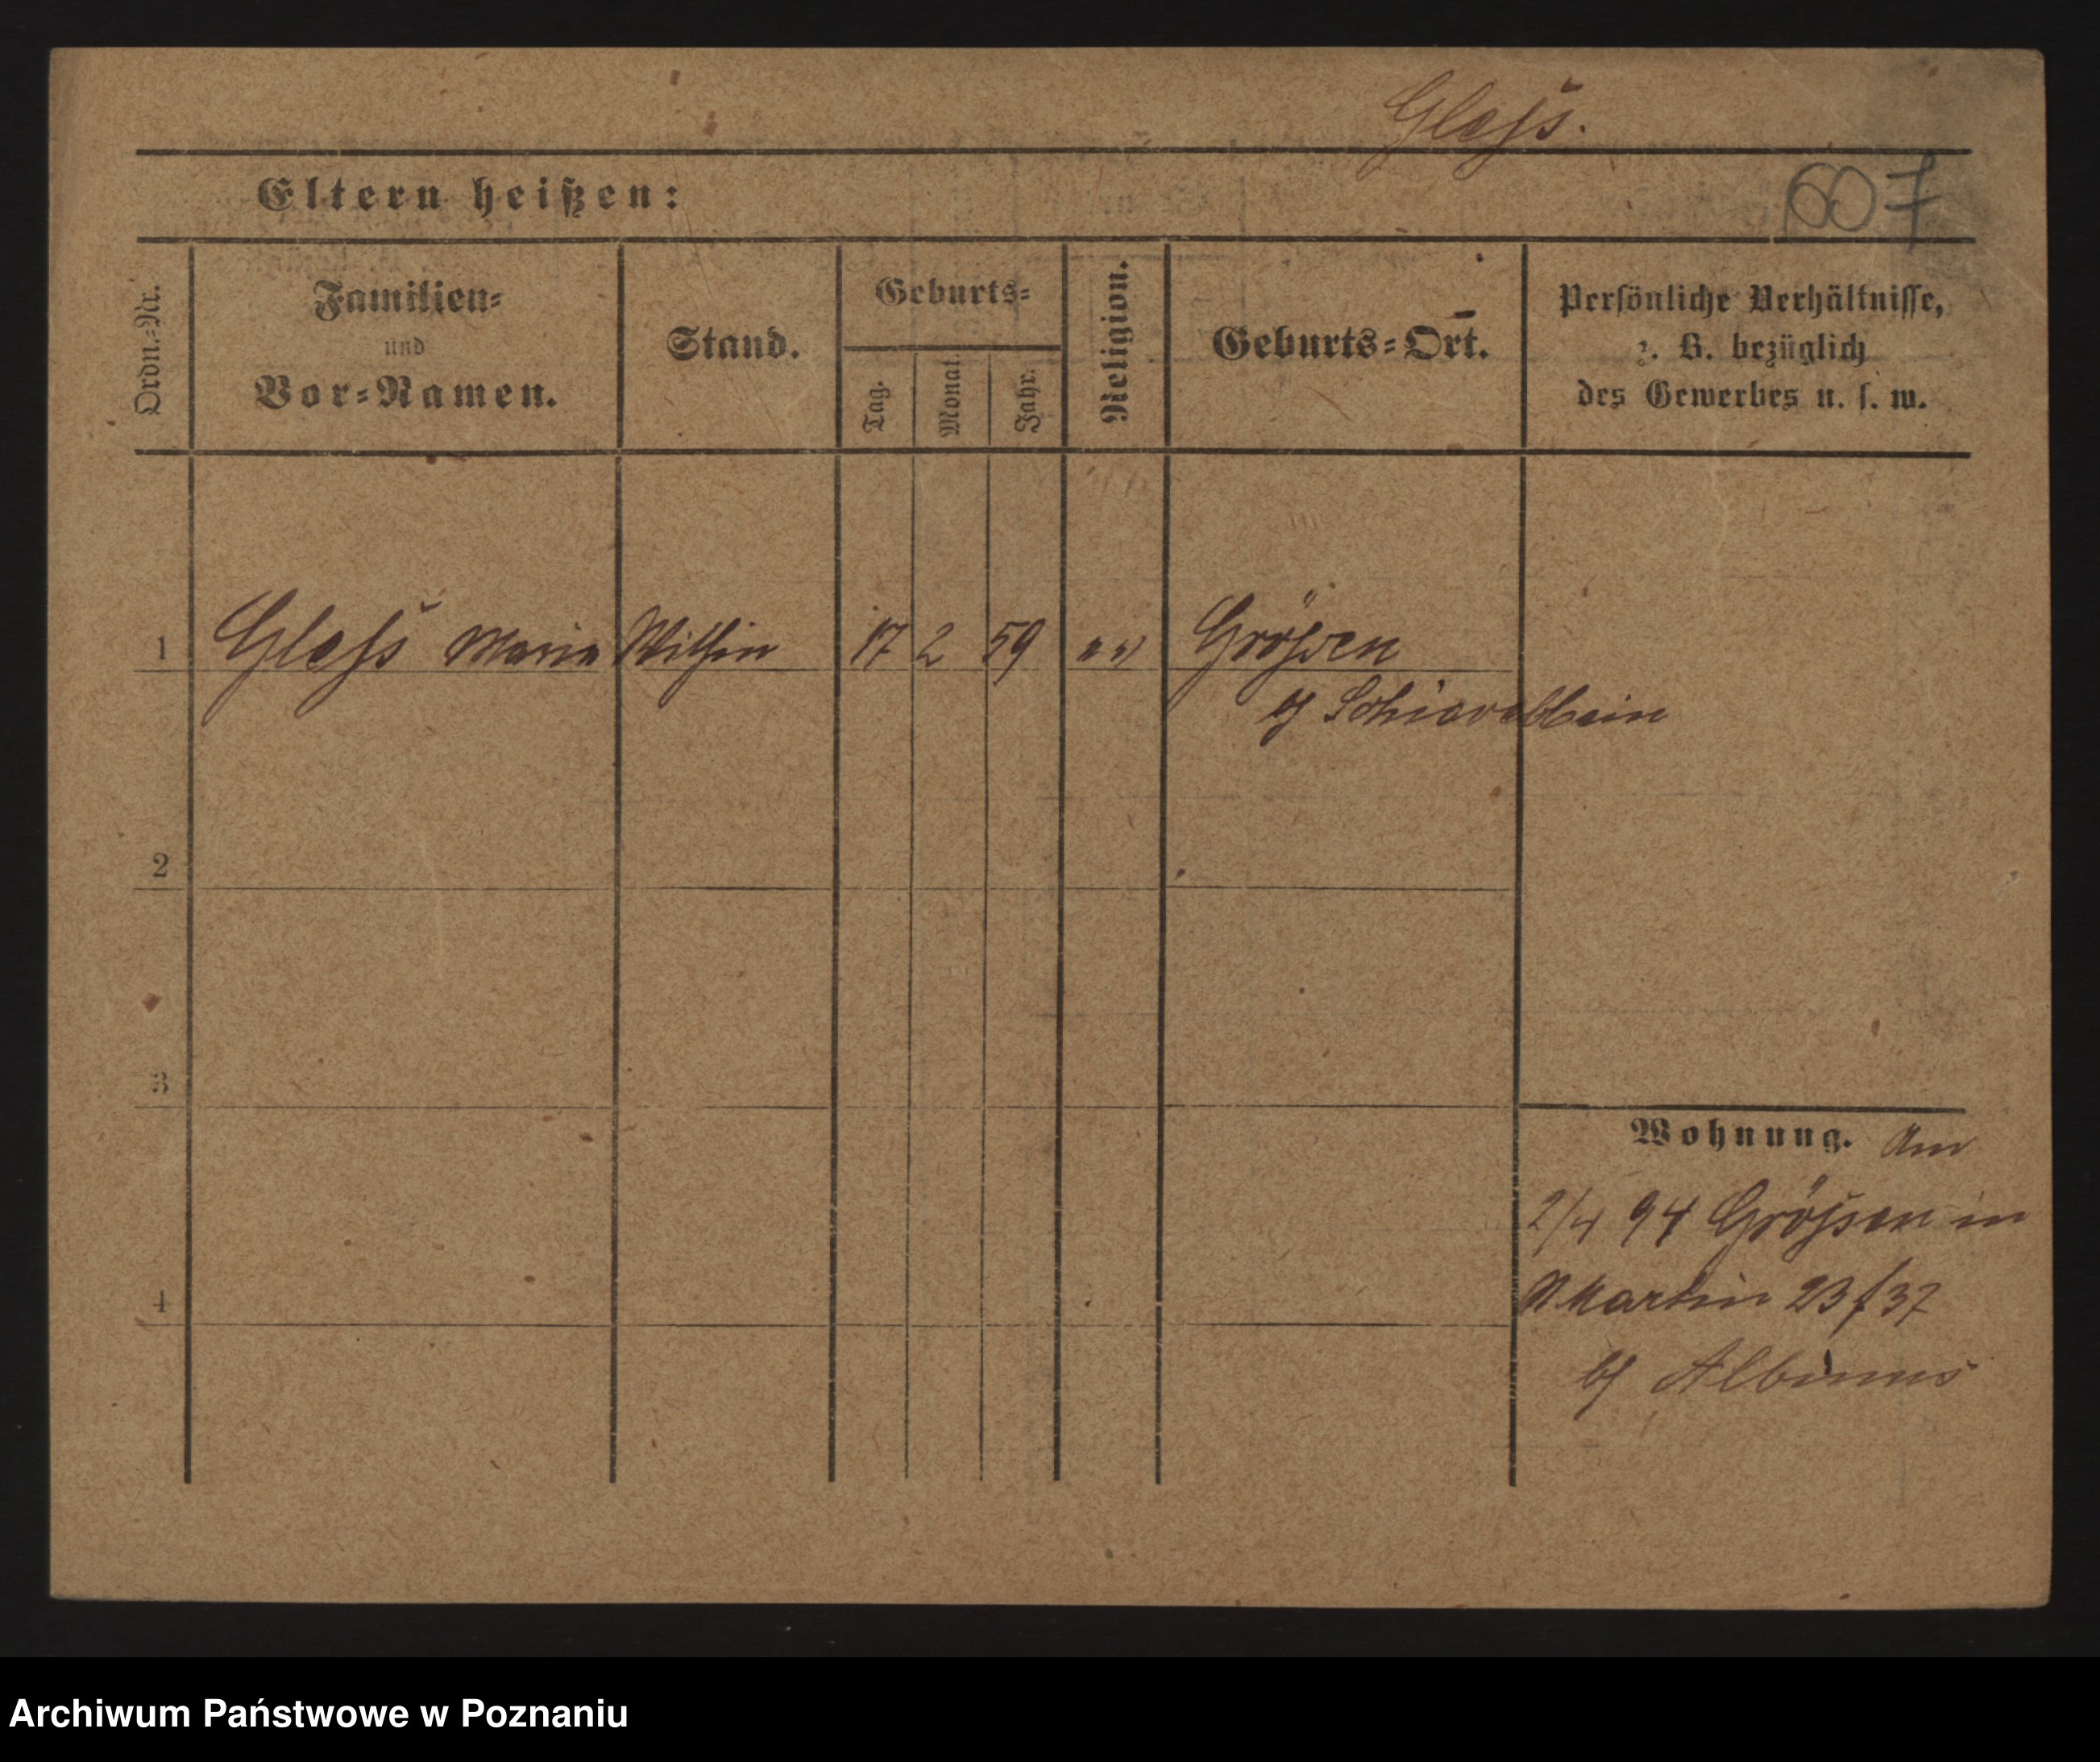 Glaß.
607
Eltern heißen:
Ordn.=Nr.
Familien=
und
Vor=Namen.
Stand.
Geburts=
Tag.
Monat.
Jahr.
Religion.
Geburts=Ort.
Persönliche Verhältnisse,
z. B. bezüglich
des Gewerbes u. s. w.
1 Marie 17 2 59 " "
b/ Schievelbein
2
3
4
Wohnung. Am
2/4 94 in
Martin 23 / 37
b/ Albinus
Archiwum Państwowe w Poznaniu